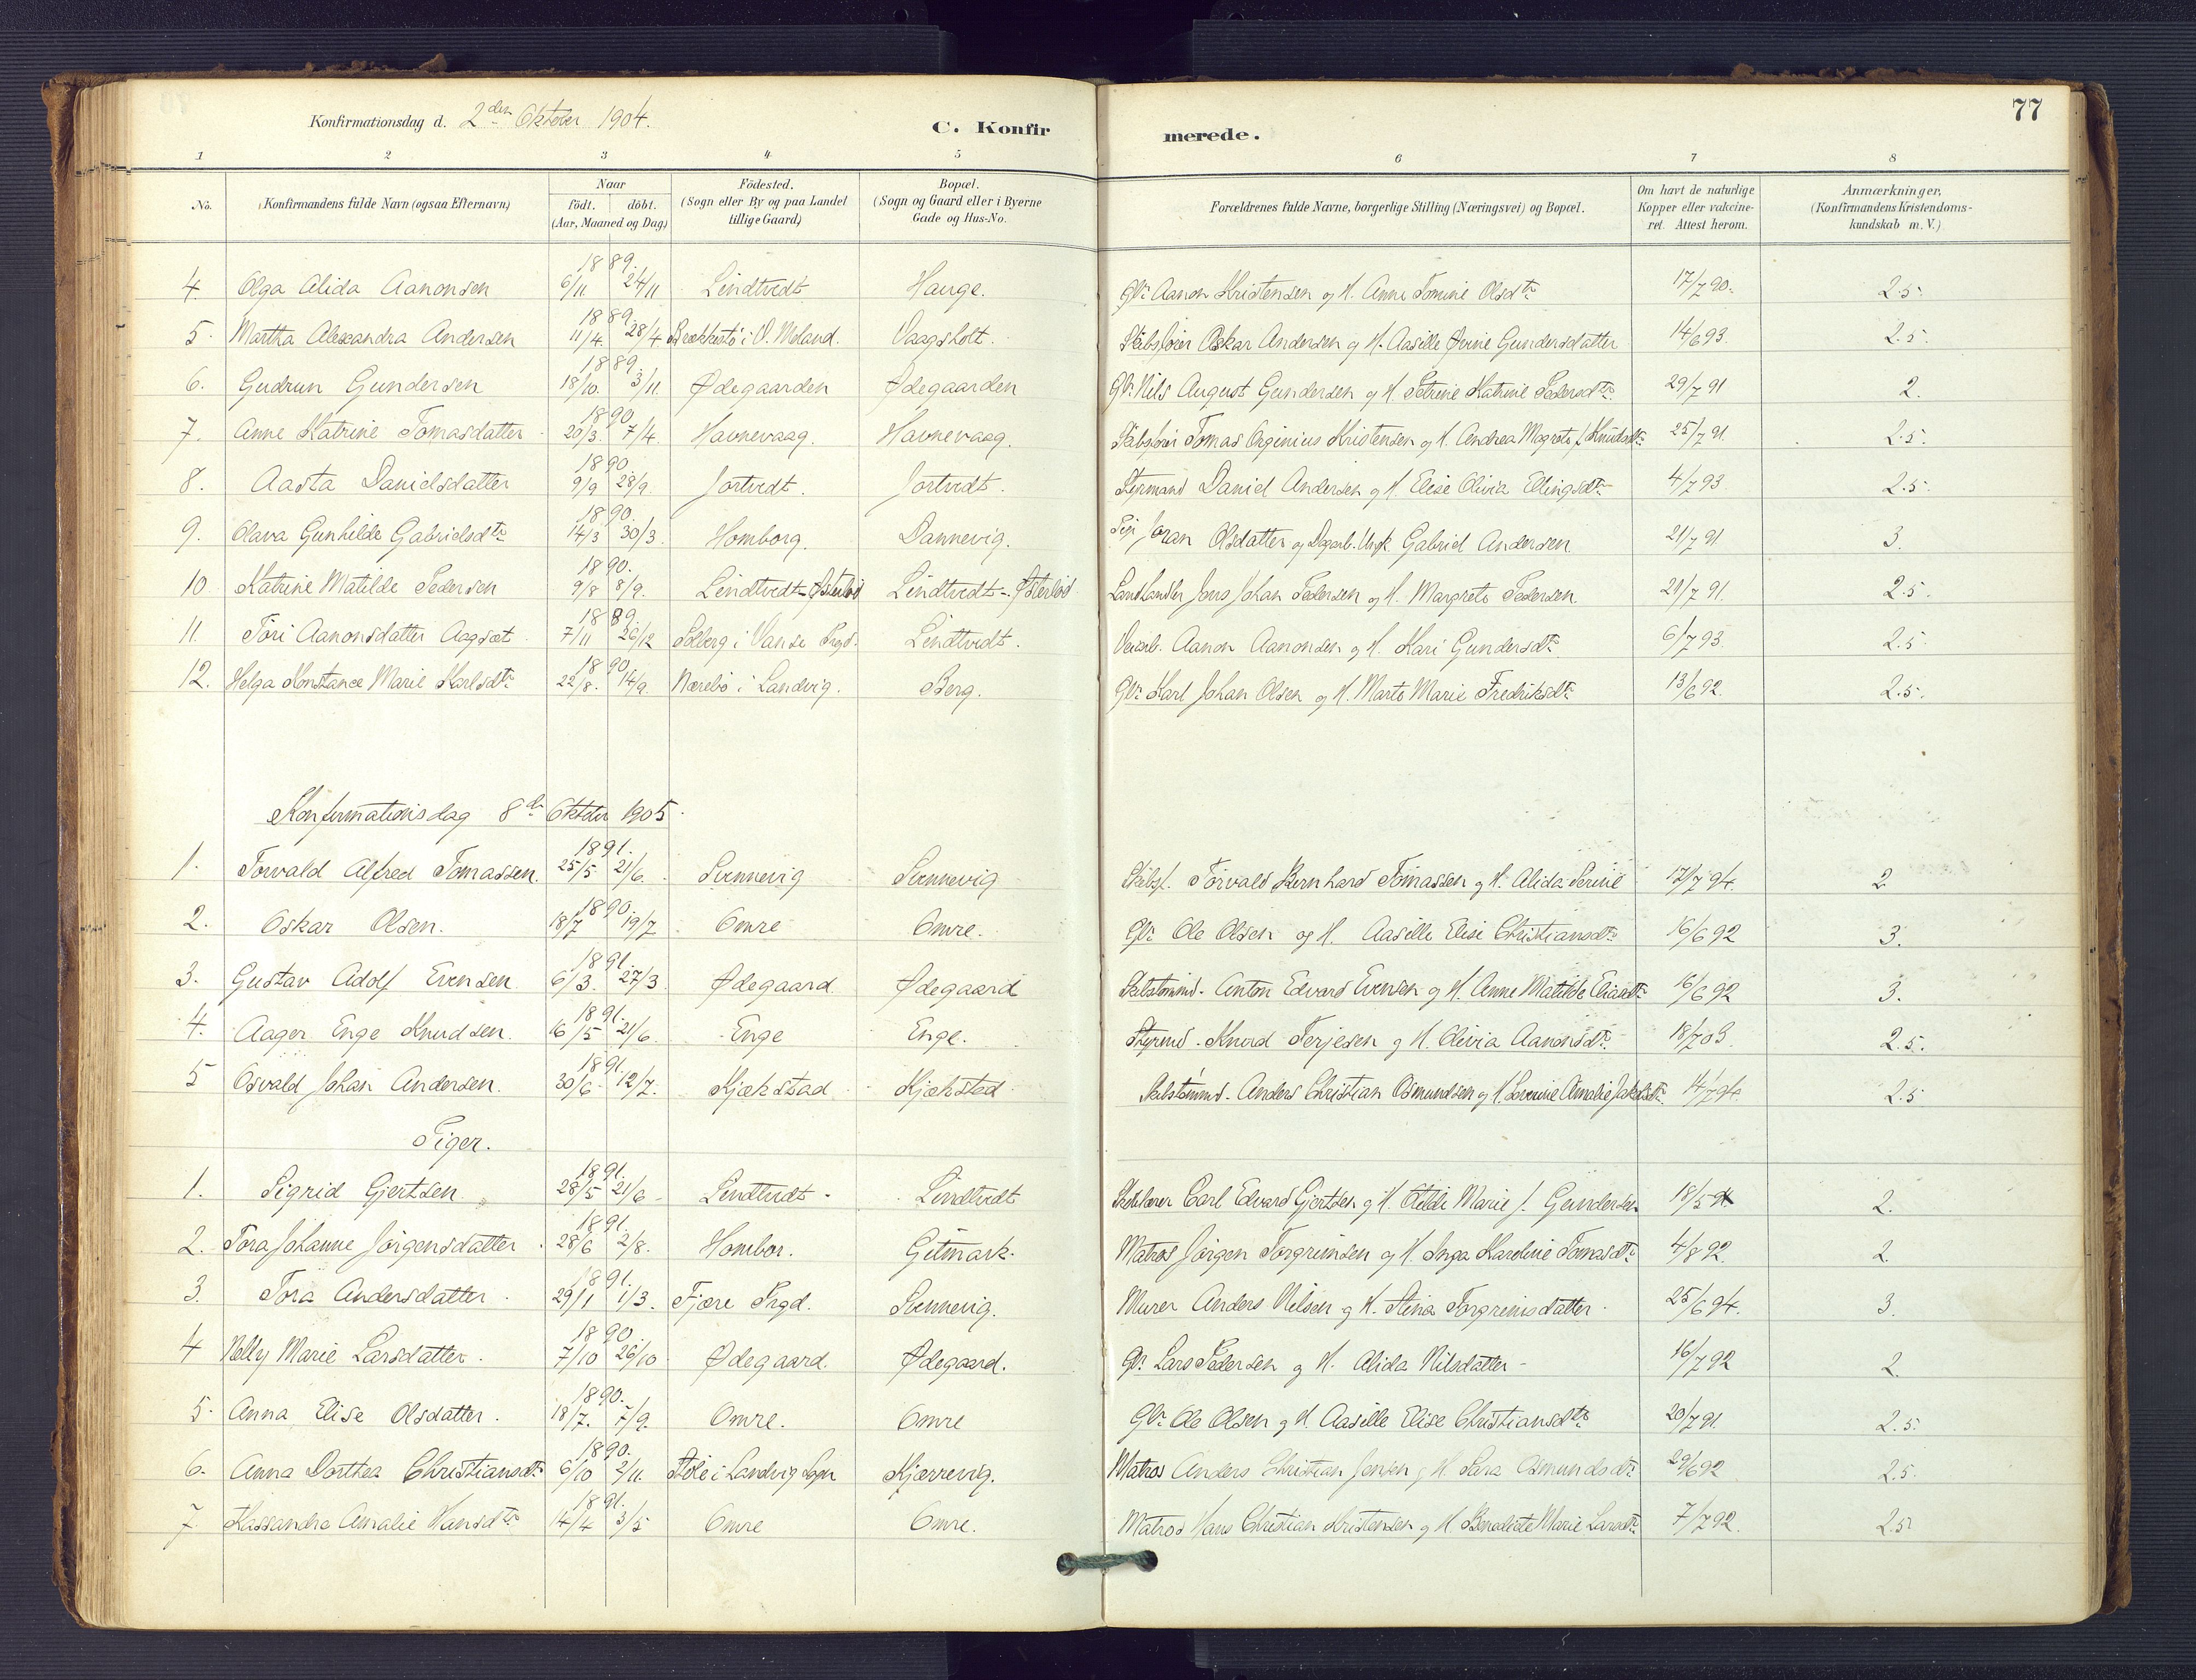 77
Konfirmationsdag d. 2den Oktober 1904.
C. Konfirmerede.
1 2 3 4 5 6 7 8
No. Konfirmandens fulde Navn (ogsaa Efternavn) Naar födt. döbt. (Aar, Maaned og Dag) Födested. (Sogn eller By og paa Landet tillige Gaard) Bopæl. (Sogn og Gaard eller i Byerne Gade og Hus-No. Forældrenes fulde Navne, borgerlige Stilling (Næringsvei) og Bopæl. Om havt de naturlige Kopper eller vakcineret. Attest herom. Anmærkninger, (Konfirmandens Kristendomskundskab m. V.)
4. Olga Alida Aanonsen 1889. 6/11 24/11 Lindtvedt Hauge. Gbr. Aanon Kristensen og H. Anne Tomine Olsdtr 17/7 90. 2.5.
5. Martha Alexandra Andersen 1889. 11/4 28/4 Brækkestö i V. Moland. Vaagsholt. Skibsförer Oskar Andersen og H. Aasille Gundersdatter 14/6 93. 2.5.
6. Gudrun Gundersen 1889. 18/10. 3/11. Ødegaarden Ødegaarden Gbr. Nils August Gundersen og H. Petrine Katrine Pedersdtr. 29/7 91 2.
7. Anne Katrine Tomasdatter 1890 20/3. 7/4. Havnevaag. Havnevaag. Skibsförer Tomas Kristensen og H. Andrea Magrete f. Knudsdtr 25/7 91. 2.5.
8. Aasta Danielsdatter 1890. 9/9 28/9. Jortvedt. Jortvedt. Styrmand Daniel Andersen og H. Elise Olivia Ellingsdtr 4/7 93. 2.5.
9. Olava Gunhilde Gabrielsdtr 1890. 14/3 30/3. Homborg. Dannevig. Pige Joran Olsdatter og Dagarb. Ungk. Gabriel Andersen. 21/7 91 3.
10 Katrine Matilde Pedersen 1890. 9/8 8/9. Lindtvedt-Østerbö Lindtvedt-Østerbö Landhandler Jens Johan Pedersen og H. Margrete Pedersen. 21/7 91. 2.5.
11. Tori Aanonsdatter Aagsæt 1889. 7/11 26/12 Solberg i Vanse Prgd. Lindtvedt. Veiarb. Aanon Aanonsen og H. Kari Gundersdtr. 6/7 93. 2.5.
12. Helga Konstance Marie Karlsdtr 1890 22/8. 14/9. Nærebö i Landvig. Berg. Gbr. Karl Johan Olsen og H. Marte Marie Fredriksdtr 13/6 92. 2.5.
Konfirmationsdag 8de Oktober 1905.
1. Torvald Alfred Tomassen. 1891. 25/5 21/6. Sunnevig Sunnevig Skibsf. Torvald Bernhard Tomassen og H. Alida Serine 17/7 94. 2
2. Oskar Olsen. 1890. 18/7 19/7 Omre Omre. Gbr. Ole Olsen og H. Aasille Elise Christiansdtr 16/6 92 3.
3. Gustav Adolf Evensen 1891. 6/3. 27/3 Ødegaard. Ødegaard Skibstömmd. Anton Edvard Evensen og H. Anne Matilde Eliasdtr 16/6 92 3.
4. Aager Enge Knudsen. 1891. 16/5 21/6. Enge Enge. Styrmd. Knud Terjesen og H. Olivia Aanonsdtr. 18/7 03. 2.5.
5 Osvald Johan Andersen. 1891. 30/6 12/7. Kjækstad Kjækstad Skibstömmd. Anders Christian Osmundsen og H. Amalie Jakobsdtr. 14/7 94. 2.5
Piger.
1. Sigrid Gjertsen 1891. 28/5 21/6 Lindtvedt. Lindtvedt Carl Edvard Gjertsen og H. Marie f. Gundersen 18/5 94 2.
2. Tora Johanne Jörgensdatter. 1891. 28/6 2/8. Hombor. Gitmark. Matros Jörgen Torgrimsen og H. Inga Karoline Tomasdtr 4/8 92. 2.
3. Tora Andersdatter. 1891. 29/1 1/3. Fjære Prgd. Sunnevig. Murer Anders Nilsen og H. Stina Torgrimsdatter. 25/6 94. 3.
4 Nelly Marie Larsdatter. 1890. 7/10 26/10 Ødegaard. Ødegaard. Gbr. Lars Pedersen og H. Alida Nilsdatter 16/7 92 2.
5. Anna Elise Olsdatter. 1890. 18/7. 7/9. Omre. Omre Gbr. Ole Olsen og H. Aasille Elise Christiansdtr 20/7 91. 2.5.
6. Anna Dorthea Christiansdtr 1890. 6/10 2/11. i Landvig Sogn Kjærrevig. Matros Anders Christian Jensen og H. Sara Osmundsdtr. 29/6 92 2.5.
7. Kassandra Amalie Hansdtr 1891. 14/4 3/5 Omre Omre. Matros Hans Christian Kristensen og H. Benedicte Marie Larsdtr. 7/7 92. 2.5